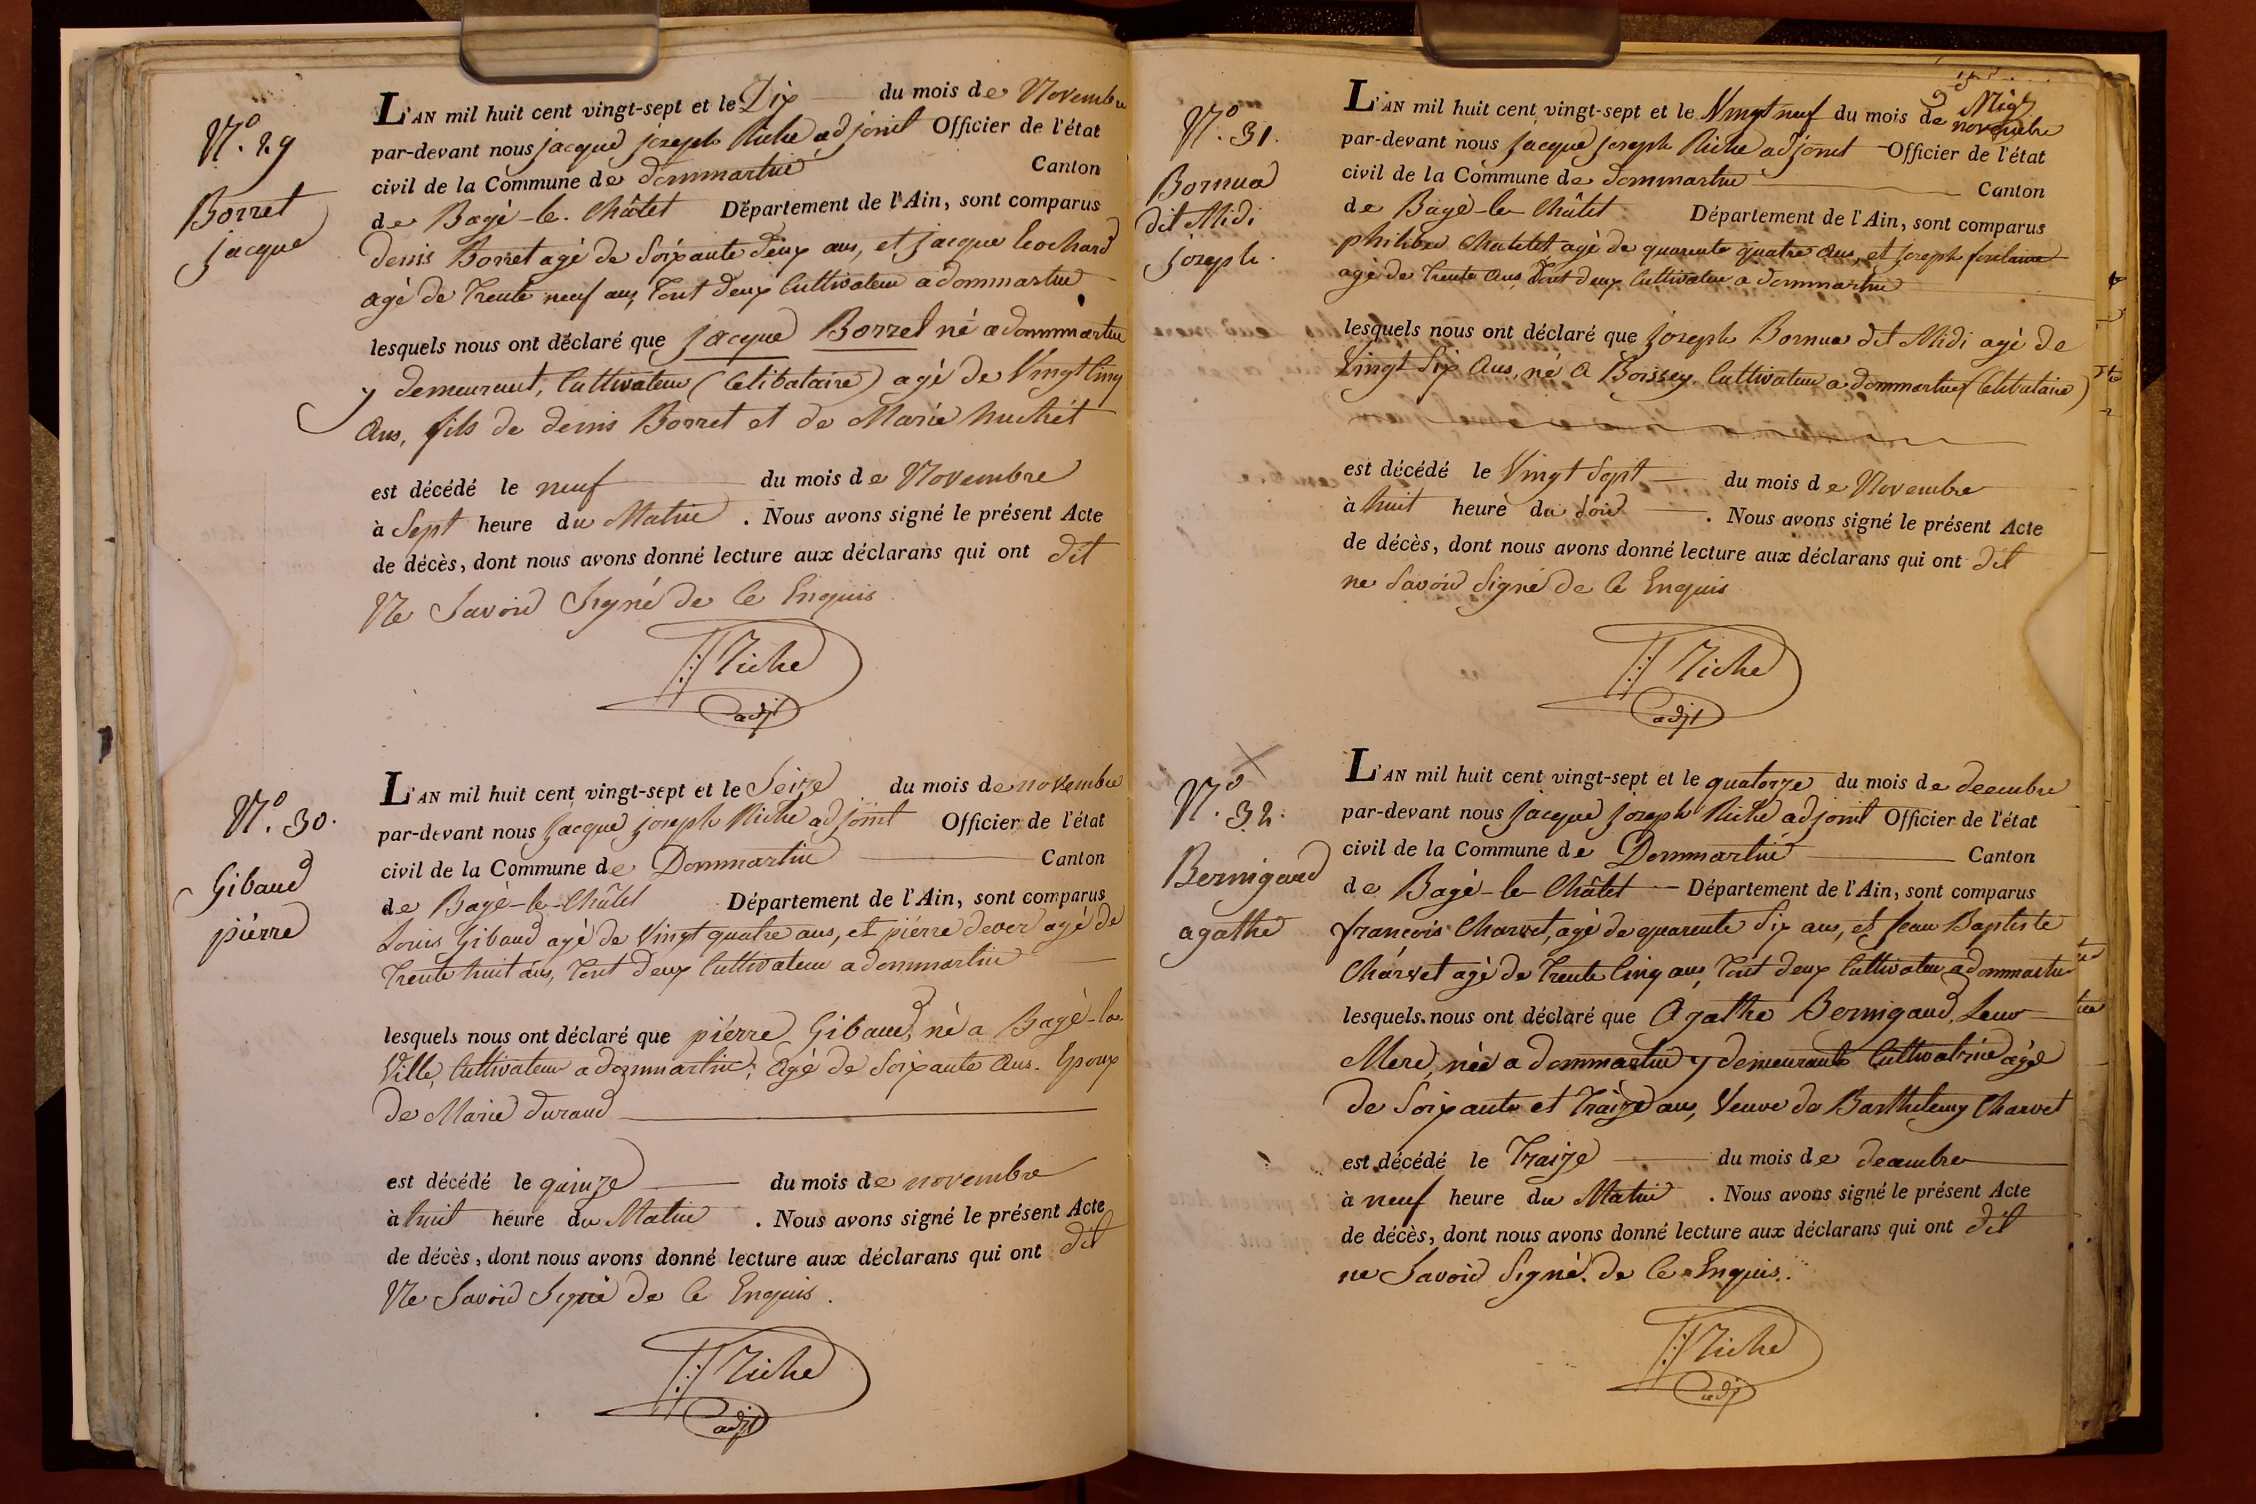 N.º 29
Borret
jacque
L'AN mil huit cent vingt-sept et le Dix du mois de Novembre
par-devant nous jacque joseph Riche adjoint Officier de l'état
civil de la Commune de dommartin Canton
de Bagé-le-Châtel Département de l'Ain, sont comparus
denis Borret agé de Soixante deux ans, et jacque Cochard
agé de Trente neuf ans, Tout deux Cultivateur a dommartin
lesquels nous ont déclaré que jacque Borret né a dommartin
y demeurant, Cultivateur (Celibataire) agé de Vingt Cinq
Ans, fils de denis Borret et de Marie
est décédé le neuf du mois de Novembre
à Sept heure du Matin . Nous avons signé le présent Acte
de décès, dont nous avons donné lecture aux déclarans qui ont dit
Ne Savoir Signé de Ce Enquis
Riche
adjt
N.º 30.
Gibaud
piérre
L'AN mil huit cent vingt-sept et le Seize du mois de novembre
par-devant nous jacque joseph Riche adjoint Officier de l'état
civil de la Commune de Dommartin Canton
de Bagé-le-Châtel Département de l'Ain, sont comparus
Louis Gibaud agé de Vingt quatre ans, et piérre dever agé de
Trente huit ans, Tout deux Cultivateur a dommartin
lesquels nous ont déclaré que piérre Gibaud, né a Bagé-la
Ville, Cultivateur a dommartin, Agé de Soixante Ans. Epoux
de Marie durand
est décédé le quinze du mois de novembre
à huit heure du Matin . Nous avons signé le présent Acte
de décès, dont nous avons donné lecture aux déclarans qui ont dit
Ne Savoir Signé de Ce Enquis.
Riche
adjt
N.º 31.
Bornua
dit Midi
joseph.
L'AN mil huit cent vingt-sept et le Vingt neuf du mois de novembre
par-devant nous jacque joseph Riche adjoint Officier de l'état
civil de la Commune de dommartin Canton
de Bagé-le-Châtel Département de l'Ain, sont comparus
philiber Chatelet agé de quarente quatre Ans, et joseph fontaine
agé de Trente Ans, Tout deux Cultivateur a dommartin
lesquels nous ont déclaré que joseph Bornua dit Midi agé de
Vingt Six Ans, né a Boissey, Cultivateur a dommartin (Celibataire)
est décédé le Vingt Sept du mois de Novembre
à huit heure du Soir . Nous avons signé le présent Acte
de décès, dont nous avons donné lecture aux déclarans qui ont dit
ne Savoir Signé de Ce Enquis
Riche
adjt
N.º 32.
Bernigaud
agathe
L'AN mil huit cent vingt-sept et le quatorze du mois de decembre
par-devant nous jacque joseph Riche adjoint Officier de l'état
civil de la Commune de Dommartin Canton
de Bagé-le-Châtel Département de l'Ain, sont comparus
françois Charvet, agé de quarente Six ans, et jean Baptiste
Charvet agé de Trente Cinq ans, Tout deux Cultivateur a dommartin
lesquels nous ont déclaré que Agathe Bernigaud, Leur
Mere, née a dommartin y demeurante Cultivatrice agée
de Soixante et Traize ans, Veuve de Barthelemy Charvet
est décédé le Traize du mois de decembre
à neuf heure du Matin . Nous avons signé le présent Acte
de décès, dont nous avons donné lecture aux déclarans qui ont dit
ne Savoir Signé. de Ce Enquis.
Riche
adj